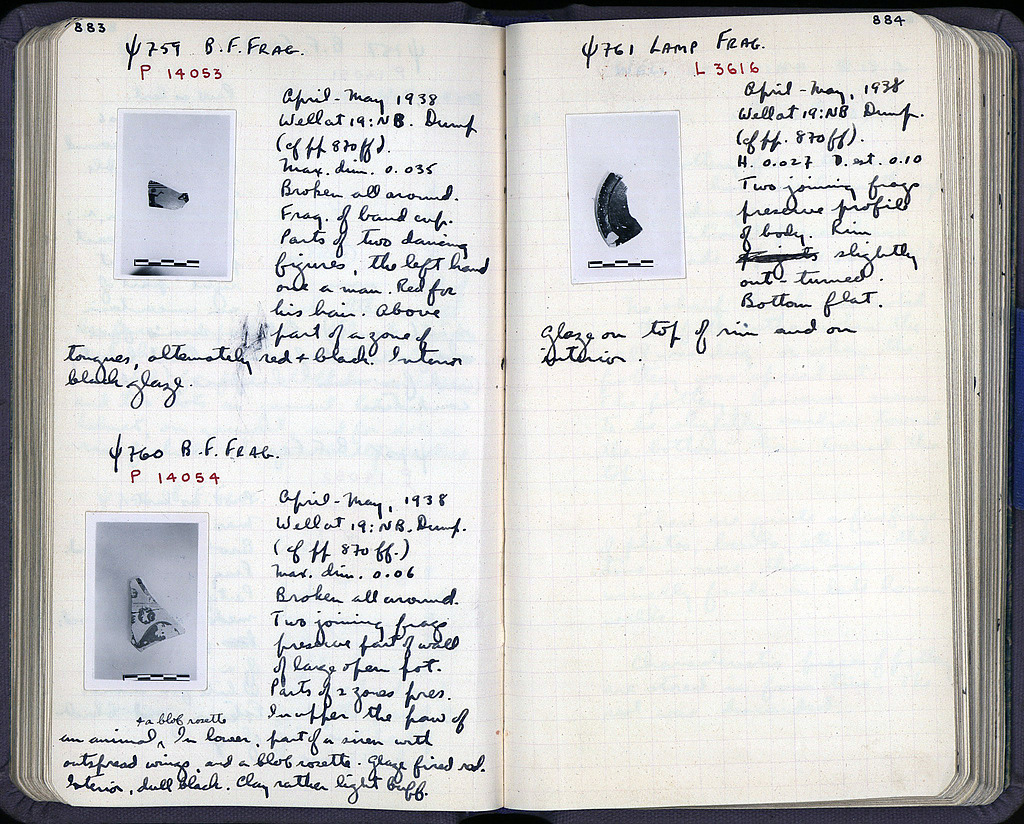 883
Ψ759 B.F. FRAG.
P 14053
April-May 1938
Well at 19:NB. Dump
(cf pp. 870ff).
Max. dim. 0.035
Broken all around.
Frag. of band cup.
Parts of two dancing
figures, the left hand
one a man. Red for
his hair. Above
part of a zone of
tongues, alternately red + black. Interior
black glaze.
Ψ760 B.F. FRAG.
P 14054
April-May, 1938
Well at 19:NB. Dump.
(cf pp 870 ff.)
Max. dim. 0.06
Broken all around.
Two joining frags
preserve part of wall
of large open pot.
Parts of 2 zones pres.
In upper the paw of
+ a blob rosette
an animal, In lower, part of a siren with
outspread wings, and a blob rosette. Glaze fired red.
Interior, dull black. Clay rather light buff.
884
Ψ761 LAMP FRAG.
L 3616
April-May, 1938
Well at 19:NB Dump.
(cf pp. 870ff).
H. 0.027 D. est. 0.10
Two joining frags
preserve profile
of body. Rim
slightly
out-turned.
Bottom flat.
Glaze on top of rim and on
interior.